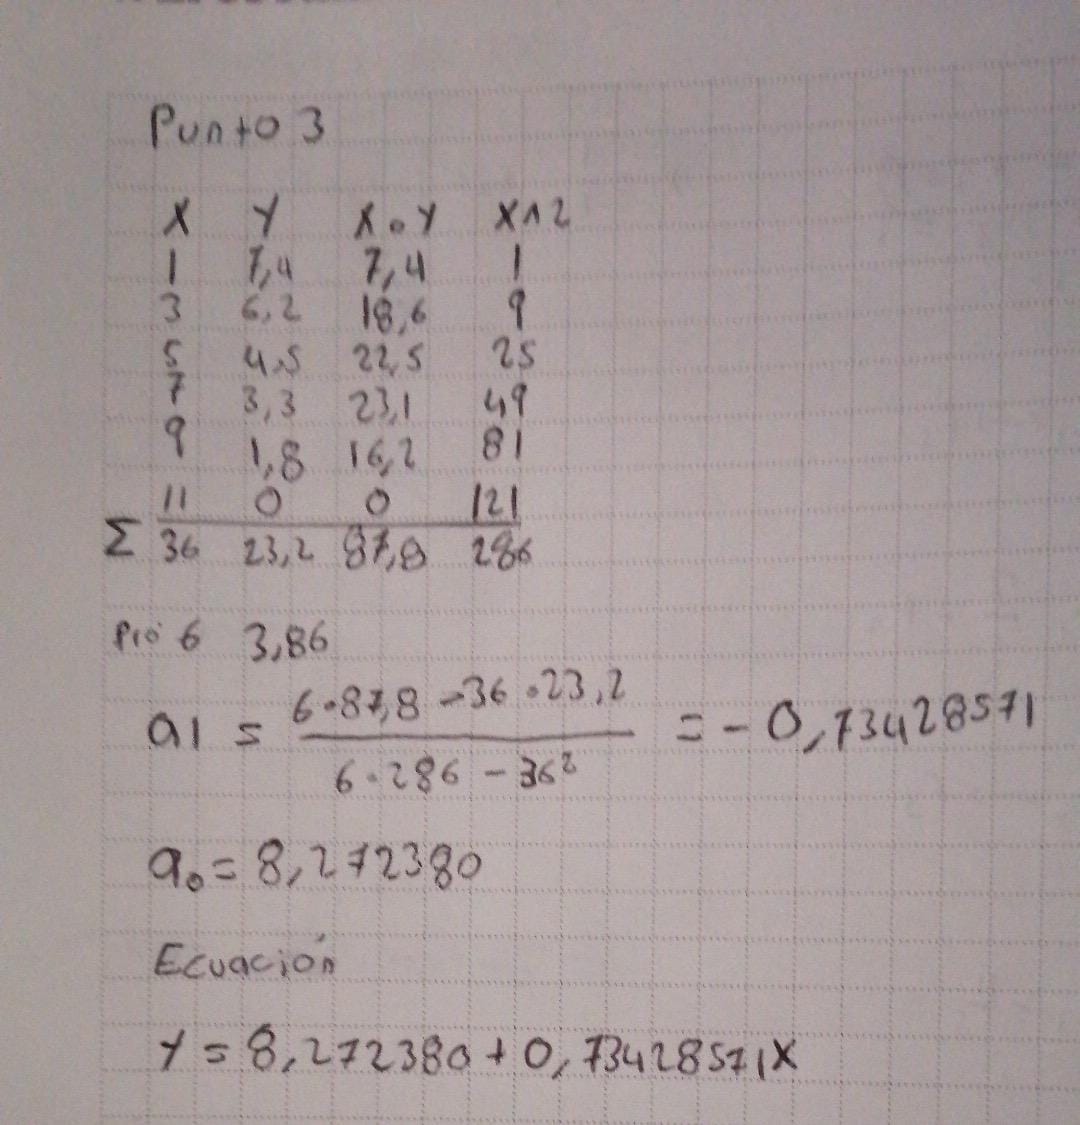 Punto 3
X Y X•Y X^2
1 7,4 7,4 1
3 6,2 18,6 9
5 4,5 22,5 25
7 3,3 23,1 49
9 1,8 16,2 81
11 0 0 121
Σ 36 23,2 87,8 286
Pro 6 3,86
a1 = (6•87,8 - 36•23,2) / (6•286 - 36²) = -0,73428571
a₀ = 8,272380
Ecuación
Y = 8,272380 + 0,73428571X